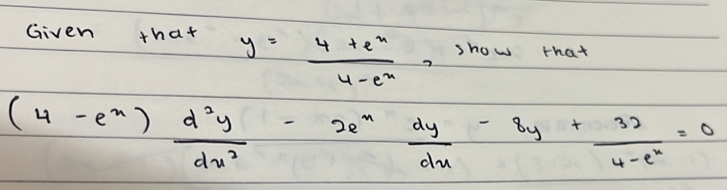 Given that y = (4 + eˣ)/(4 - eˣ), show that
(4 - eˣ) d²y/dx² - 2eˣ dy/dx - 8y + 32/(4 - eˣ) = 0